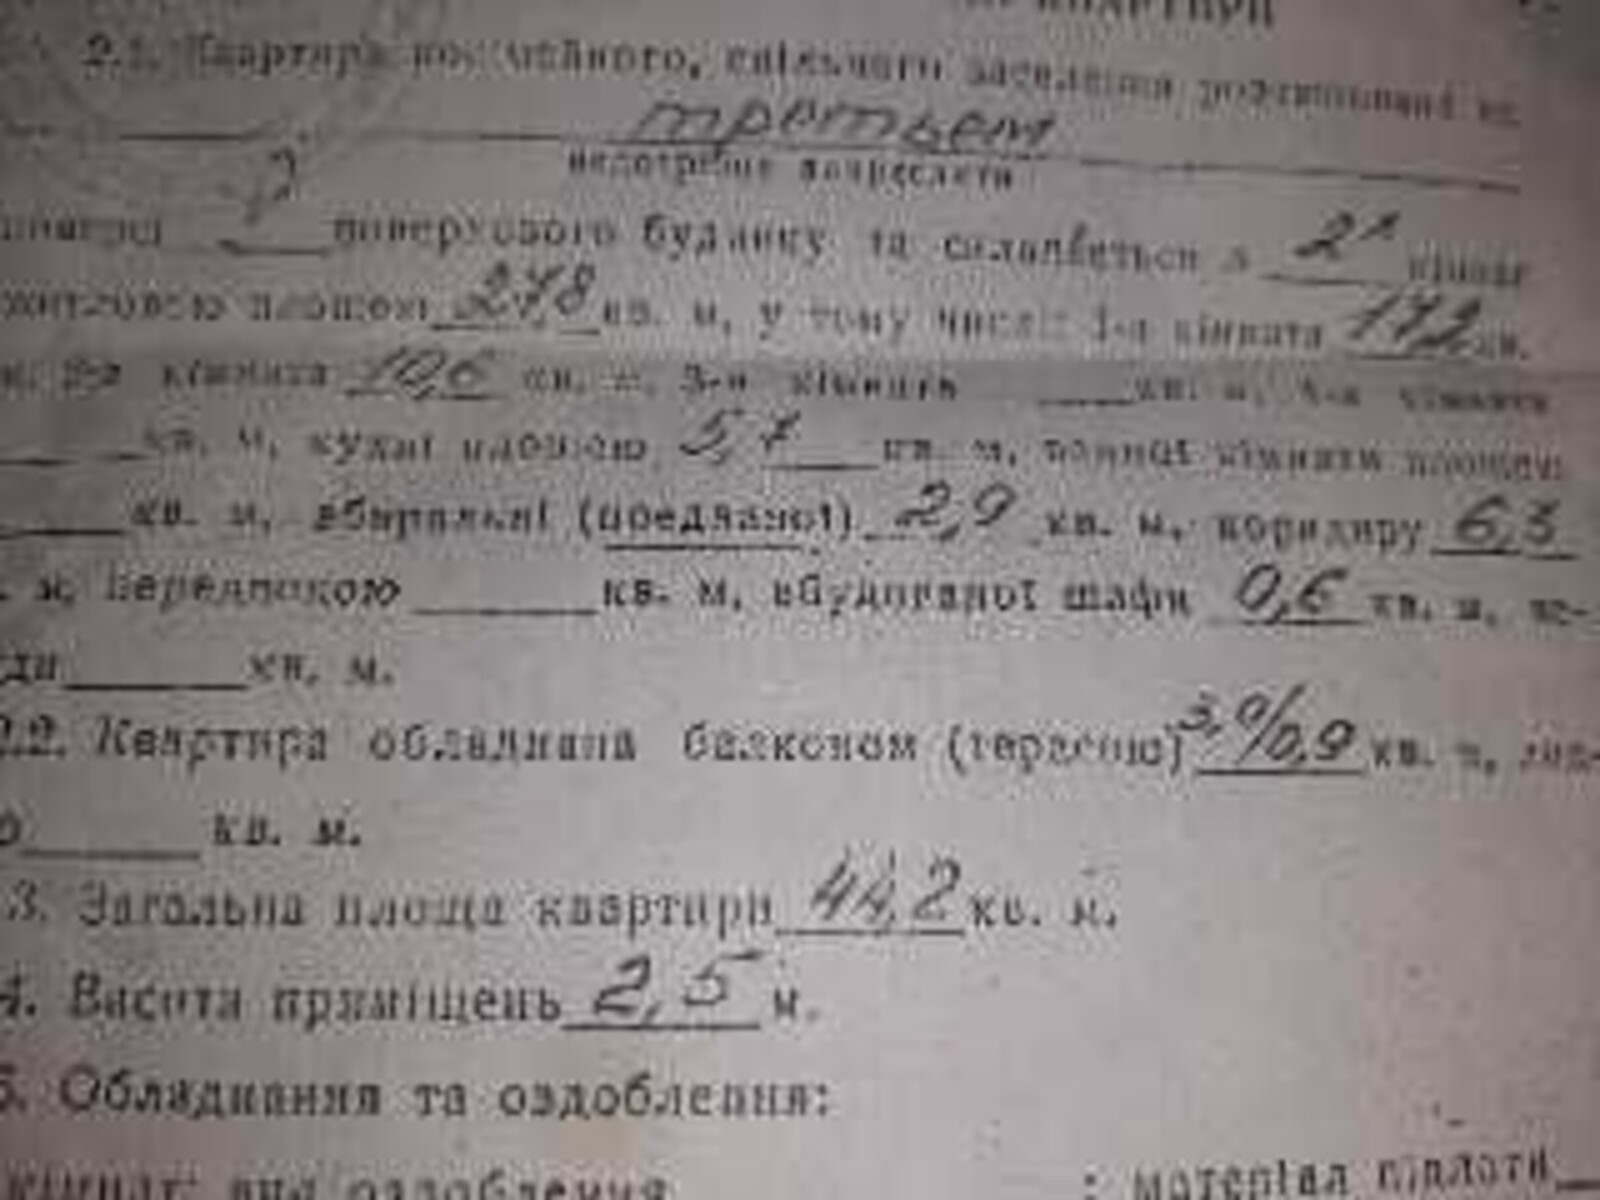 КВАРТИРИ
2.1. Квартира посімейного, спільного заселення розташована на
третьем
непотрібне викреслити
поверсі поверхового будинку та складається з 2х кімнат
житловою площею 27,8 кв. м, у тому числі 1-а кімната 17,2 кв.
м, 2-а кімната 10,6 кв. м, 3-я кімната ____ кв. м, 4-а кімната
____ кв. м, кухні площею 5,7 кв. м, ванної кімнати площею
____ кв. м, вбиральні (поєднаної) 2,9 кв. м, коридору 6,3
. м, передпокою ____ кв. м, вбудованої шафи 0,6 кв. м,
ди ____ кв. м.
2.2. Квартира обладнана балконом (терасою) 3,0/0,9 кв. м,
ю ____ кв. м.
3. Загальна площа квартири 44,2 кв. м.
4. Висота приміщень 2,5 м.
5. Обладнання та оздоблення:
кімнат: вид оздоблення : матеріал підлоги